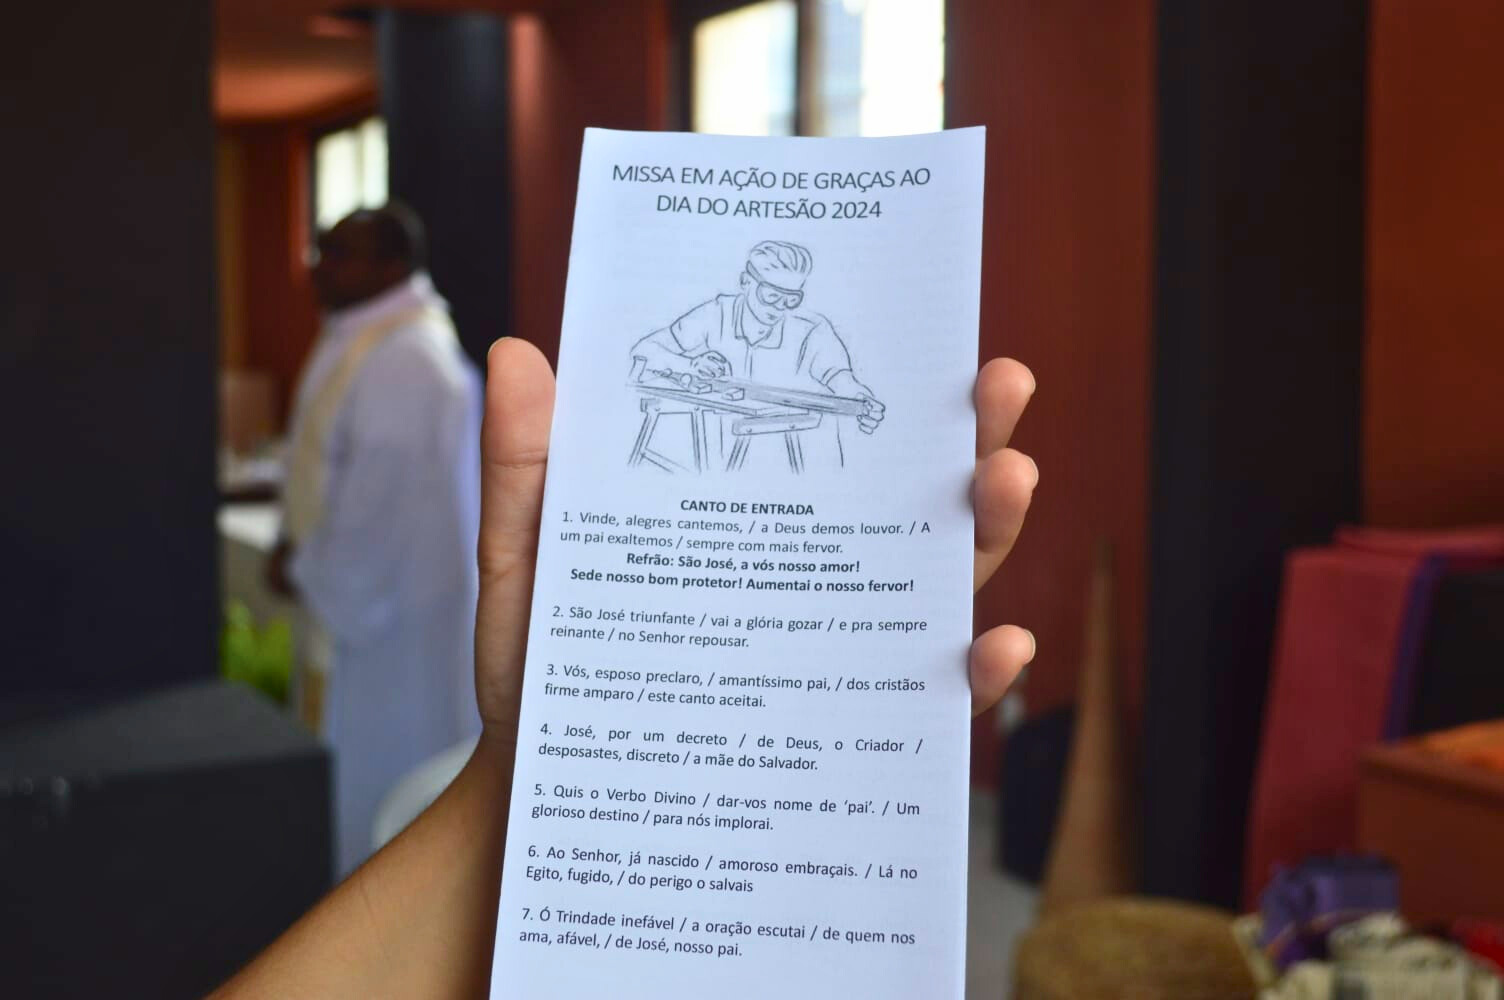 MISSA EM AÇÃO DE GRAÇAS AO
DIA DO ARTESÃO 2024
CANTO DE ENTRADA
1. Vinde, alegres cantemos, / a Deus demos louvor. / A
um pai exaltemos / sempre com mais fervor.
Refrão: São José, a vós nosso amor!
Sede nosso bom protetor! Aumentai o nosso fervor!
2. São José triunfante / vai a glória gozar / e pra sempre
reinante / no Senhor repousar.
3. Vós, esposo preclaro, / amantíssimo pai, / dos cristãos
firme amparo / este canto aceitai.
4. José, por um decreto / de Deus, o Criador /
desposastes, discreto / a mãe do Salvador.
5. Quis o Verbo Divino / dar-vos nome de ‘pai’. / Um
glorioso destino / para nós implorai.
6. Ao Senhor, já nascido / amoroso embraçais. / Lá no
Egito, fugido, / do perigo o salvais
7. Ó Trindade inefável / a oração escutai / de quem nos
ama, afável, / de José, nosso pai.